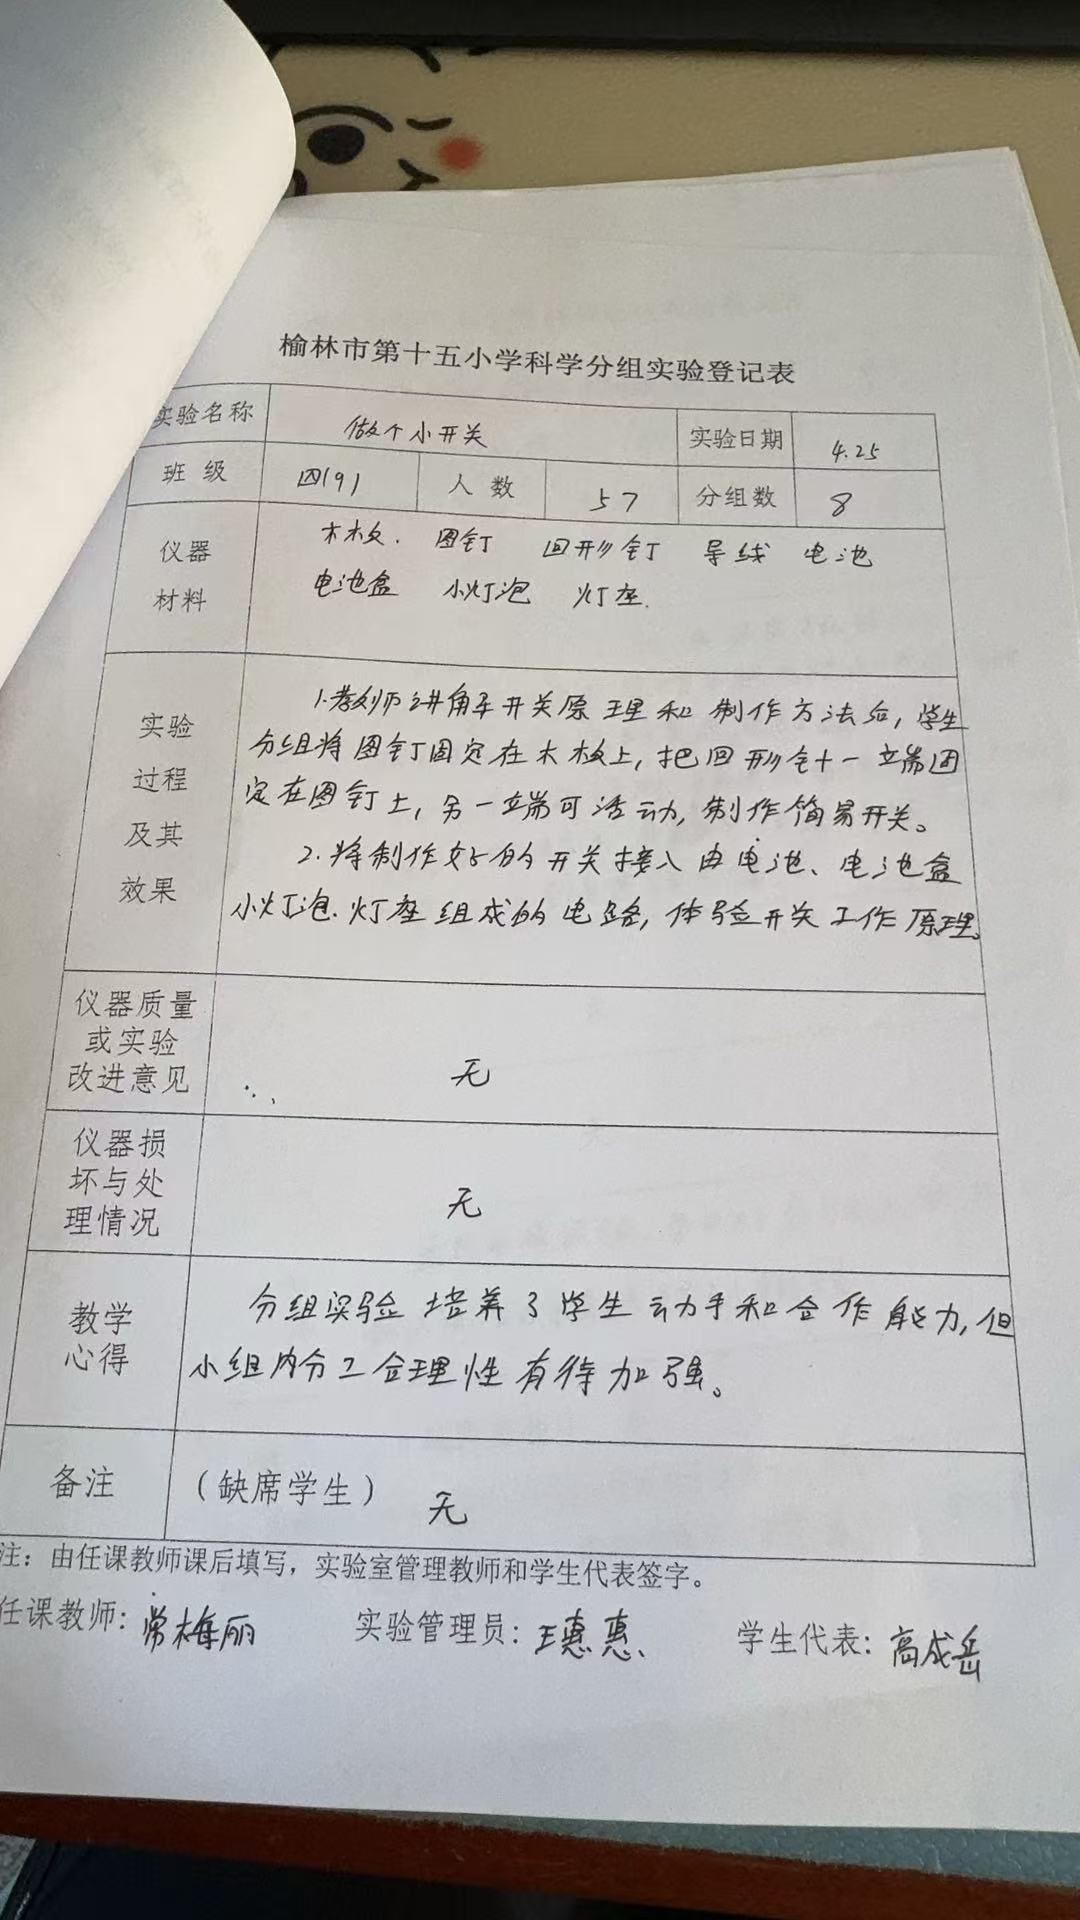 榆林市第十五小学科学分组实验登记表
实验名称 做个小开关 实验日期 4.25
班 级 四(9) 人 数 57 分组数 8
仪器
材料
木板. 图钉 回形钉 导线 电池
电池盒 小灯泡 灯座.
实验
过程
及其
效果
1.教师讲解开关原理和制作方法后,学生
分组将图钉固定在木板上,把回形针一端固
定在图钉上,另一端可活动,制作简易开关。
2.将制作好的开关接入由电池、电池盒
小灯泡.灯座组成的电路,体验开关工作原理。
仪器质量
或实验
改进意见
无
仪器损
坏与处
理情况
无
教学
心得
分组实验培养了学生动手和合作能力,但
小组内分工合理性有待加强。
备注 (缺席学生) 无
注：由任课教师课后填写，实验室管理教师和学生代表签字。
任课教师: 常梅丽 实验管理员: 王惠惠 学生代表: 高成岳